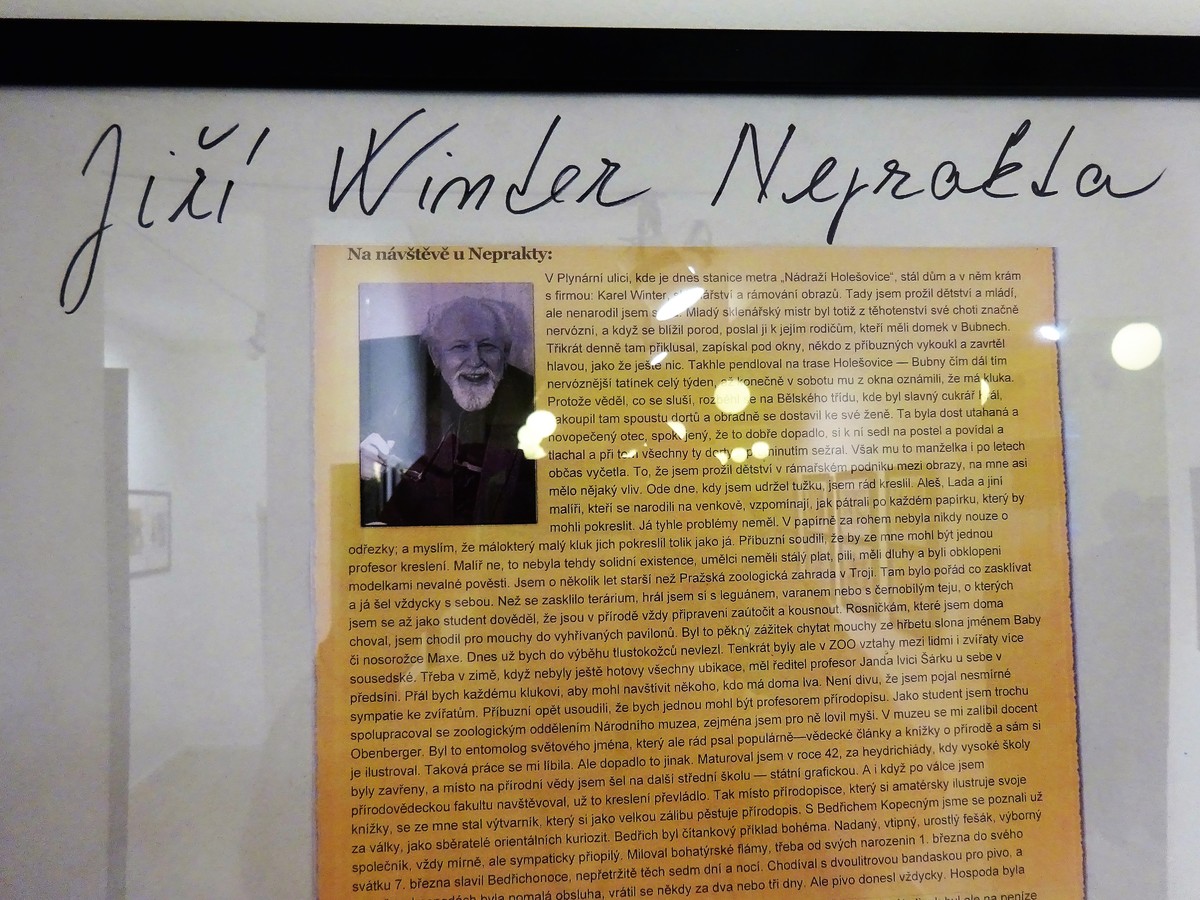 Jiří Winter Neprakta
Na návštěvě u Neprakty:
V Plynární ulici, kde je dnes stanice metra „Nádraží Holešovice“, stál dům a v něm krám
s firmou: Karel Winter, a rámování obrazů. Tady jsem prožil dětství a mládí,
ale nenarodil jsem Mladý sklenářský mistr byl totiž z těhotenství své choti značně
nervózní, a když se blížil porod, poslal ji k jejím rodičům, kteří měli domek v Bubnech.
Třikrát denně tam přiklusal, zapískal pod okny, někdo z příbuzných vykoukl a zavrtěl
hlavou, jako že ještě nic. Takhle pendloval na trase Holešovice — Bubny čím dál tím
nervóznější tatínek celý týden, až konečně v sobotu mu z okna oznámili, že má kluka.
Protože věděl, co se sluší, na Bělského třídu, kde byl slavný cukrář
nakoupil tam spoustu dortů a obřadně se dostavil ke své ženě. Ta byla dost utahaná a
novopečený otec, spokojený, že to dobře dopadlo, si k ní sedl na postel a povídal a
tlachal a při tom všechny ty dorty sežral. Však mu to manželka i po letech
občas vyčetla. To, že jsem prožil dětství v rámařském podniku mezi obrazy, na mne asi
mělo nějaký vliv. Ode dne, kdy jsem udržel tužku, jsem rád kreslil. Aleš, Lada a jiní
malíři, kteří se narodili na venkově, vzpomínají, jak pátrali po každém papírku, který by
mohli pokreslit. Já tyhle problémy neměl. V papírně za rohem nebyla nikdy nouze o
odřezky; a myslím, že málokterý malý kluk jich pokreslil tolik jako já. Příbuzní soudili, že by ze mne mohl být jednou
profesor kreslení. Malíř ne, to nebyla tehdy solidní existence, umělci neměli stálý plat, pili, měli dluhy a byli obklopeni
modelkami nevalné pověsti. Jsem o několik let starší než Pražská zoologická zahrada v Troji. Tam bylo pořád co zasklívat
a já šel vždycky s sebou. Než se zasklilo terárium, hrál jsem si s leguánem, varanem nebo s černobílým teju, o kterých
jsem se až jako student dověděl, že jsou v přírodě vždy připraveni zaútočit a kousnout. Rosničkám, které jsem doma
choval, jsem chodil pro mouchy do vyhřívaných pavilonů. Byl to pěkný zážitek chytat mouchy ze hřbetu slona jménem Baby
či nosorožce Maxe. Dnes už bych do výběhu tlustokožců nevlezl. Tenkrát byly ale v ZOO vztahy mezi lidmi i zvířaty více
sousedské. Třeba v zimě, když nebyly ještě hotovy všechny ubikace, měl ředitel profesor Janda lvici Šárku u sebe v
předsíni. Přál bych každému klukovi, aby mohl navštívit někoho, kdo má doma lva. Není divu, že jsem pojal nesmírné
sympatie ke zvířatům. Příbuzní opět usoudili, že bych jednou mohl být profesorem přírodopisu. Jako student jsem trochu
spolupracoval se zoologickým oddělením Národního muzea, zejména jsem pro ně lovil myši. V muzeu se mi zalíbil docent
Obenberger. Byl to entomolog světového jména, který ale rád psal populárně—vědecké články a knížky o přírodě a sám si
je ilustroval. Taková práce se mi líbila. Ale dopadlo to jinak. Maturoval jsem v roce 42, za heydrichiády, kdy vysoké školy
byly zavřeny, a místo na přírodní vědy jsem šel na další střední školu — státní grafickou. A i když po válce jsem
přírodovědeckou fakultu navštěvoval, už to kreslení převládlo. Tak místo přírodopisce, který si amatérsky ilustruje svoje
knížky, se ze mne stal výtvarník, který si jako velkou zálibu pěstuje přírodopis. S Bedřichem Kopecným jsme se poznali už
za války, jako sběratelé orientálních kuriozit. Bedřich byl čítankový příklad bohéma. Nadaný, vtipný, urostlý fešák, výborný
společník, vždy mírně, ale sympaticky přiopilý. Miloval bohatýrské flámy, třeba od svých narozenin 1. března do svého
svátku 7. března slavil Bedřichonoce, nepřetržitě těch sedm dní a nocí. Chodíval s dvoulitrovou bandaskou pro pivo, a
byla pomalá obsluha, vrátil se někdy za dva nebo tři dny. Ale pivo donesl vždycky. Hospoda byla